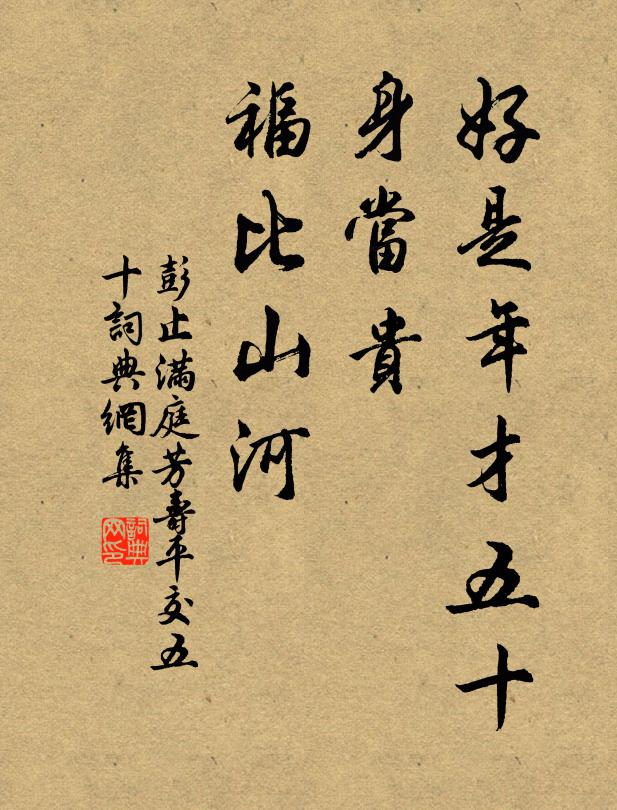 好是年才五十
身當貴
福比山河
彭止滿庭芳壽平交五
十詞典網集
詞典网印